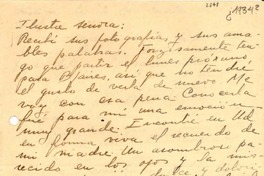 ¿1934?
Ilustre señora:
Recibí sus fotografías, y sus ama-
bles palabras. Forzosamente ten-
go que partir el lunes próximo
para B.Aires, así que no tendré
el gusto de verla de nuevo. Me
voy con esa pena. Conocerla
fué para mí una emoción
muy grande. Encontré en Ud
en forma viva el recuerdo de
mi madre. Un asombroso pa-
recido en los ojos y la